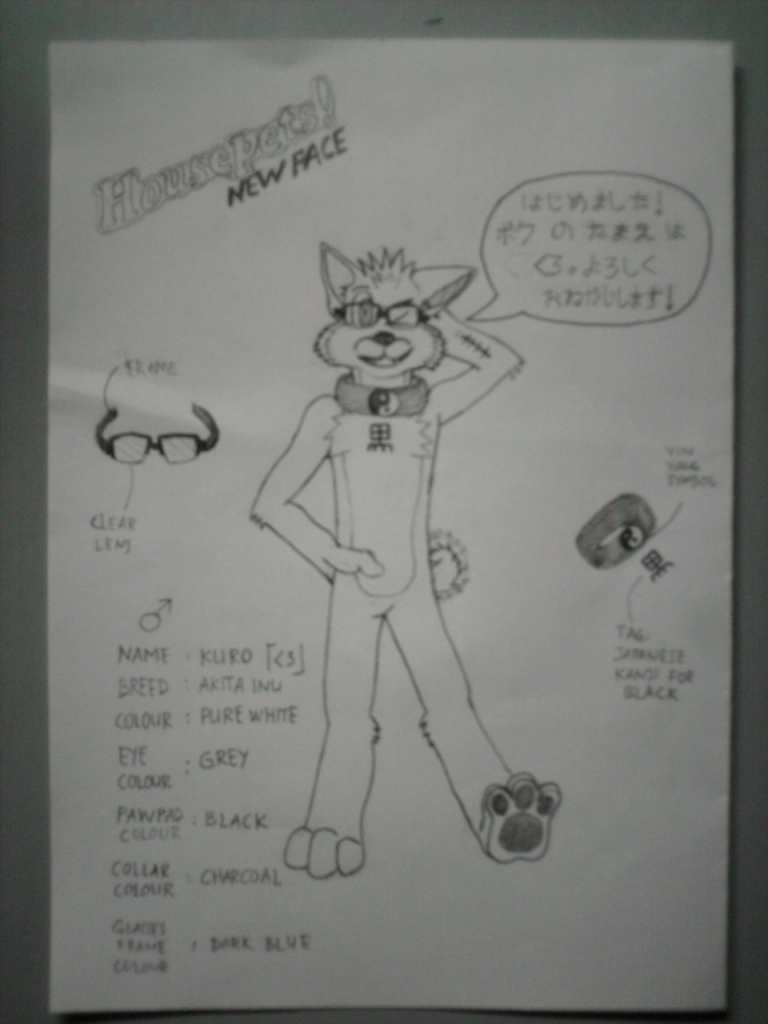 Housepets!
NEW FACE
はじめました!
ボク の なまえ は
くろ。よろしく
おねがいします!
FRAME
CLEAR
LENS
黒
YIN
YANG
SYMBOL
黒
TAG:
JAPANESE
KANJI FOR
BLACK
♂
NAME : KURO 「くろ」
BREED : AKITA INU
COLOUR : PURE WHITE
EYE
COLOUR : GREY
PAWPAD
COLOUR : BLACK
COLLAR
COLOUR : CHARCOAL
GLASSES
FRAME : DARK BLUE
COLOUR